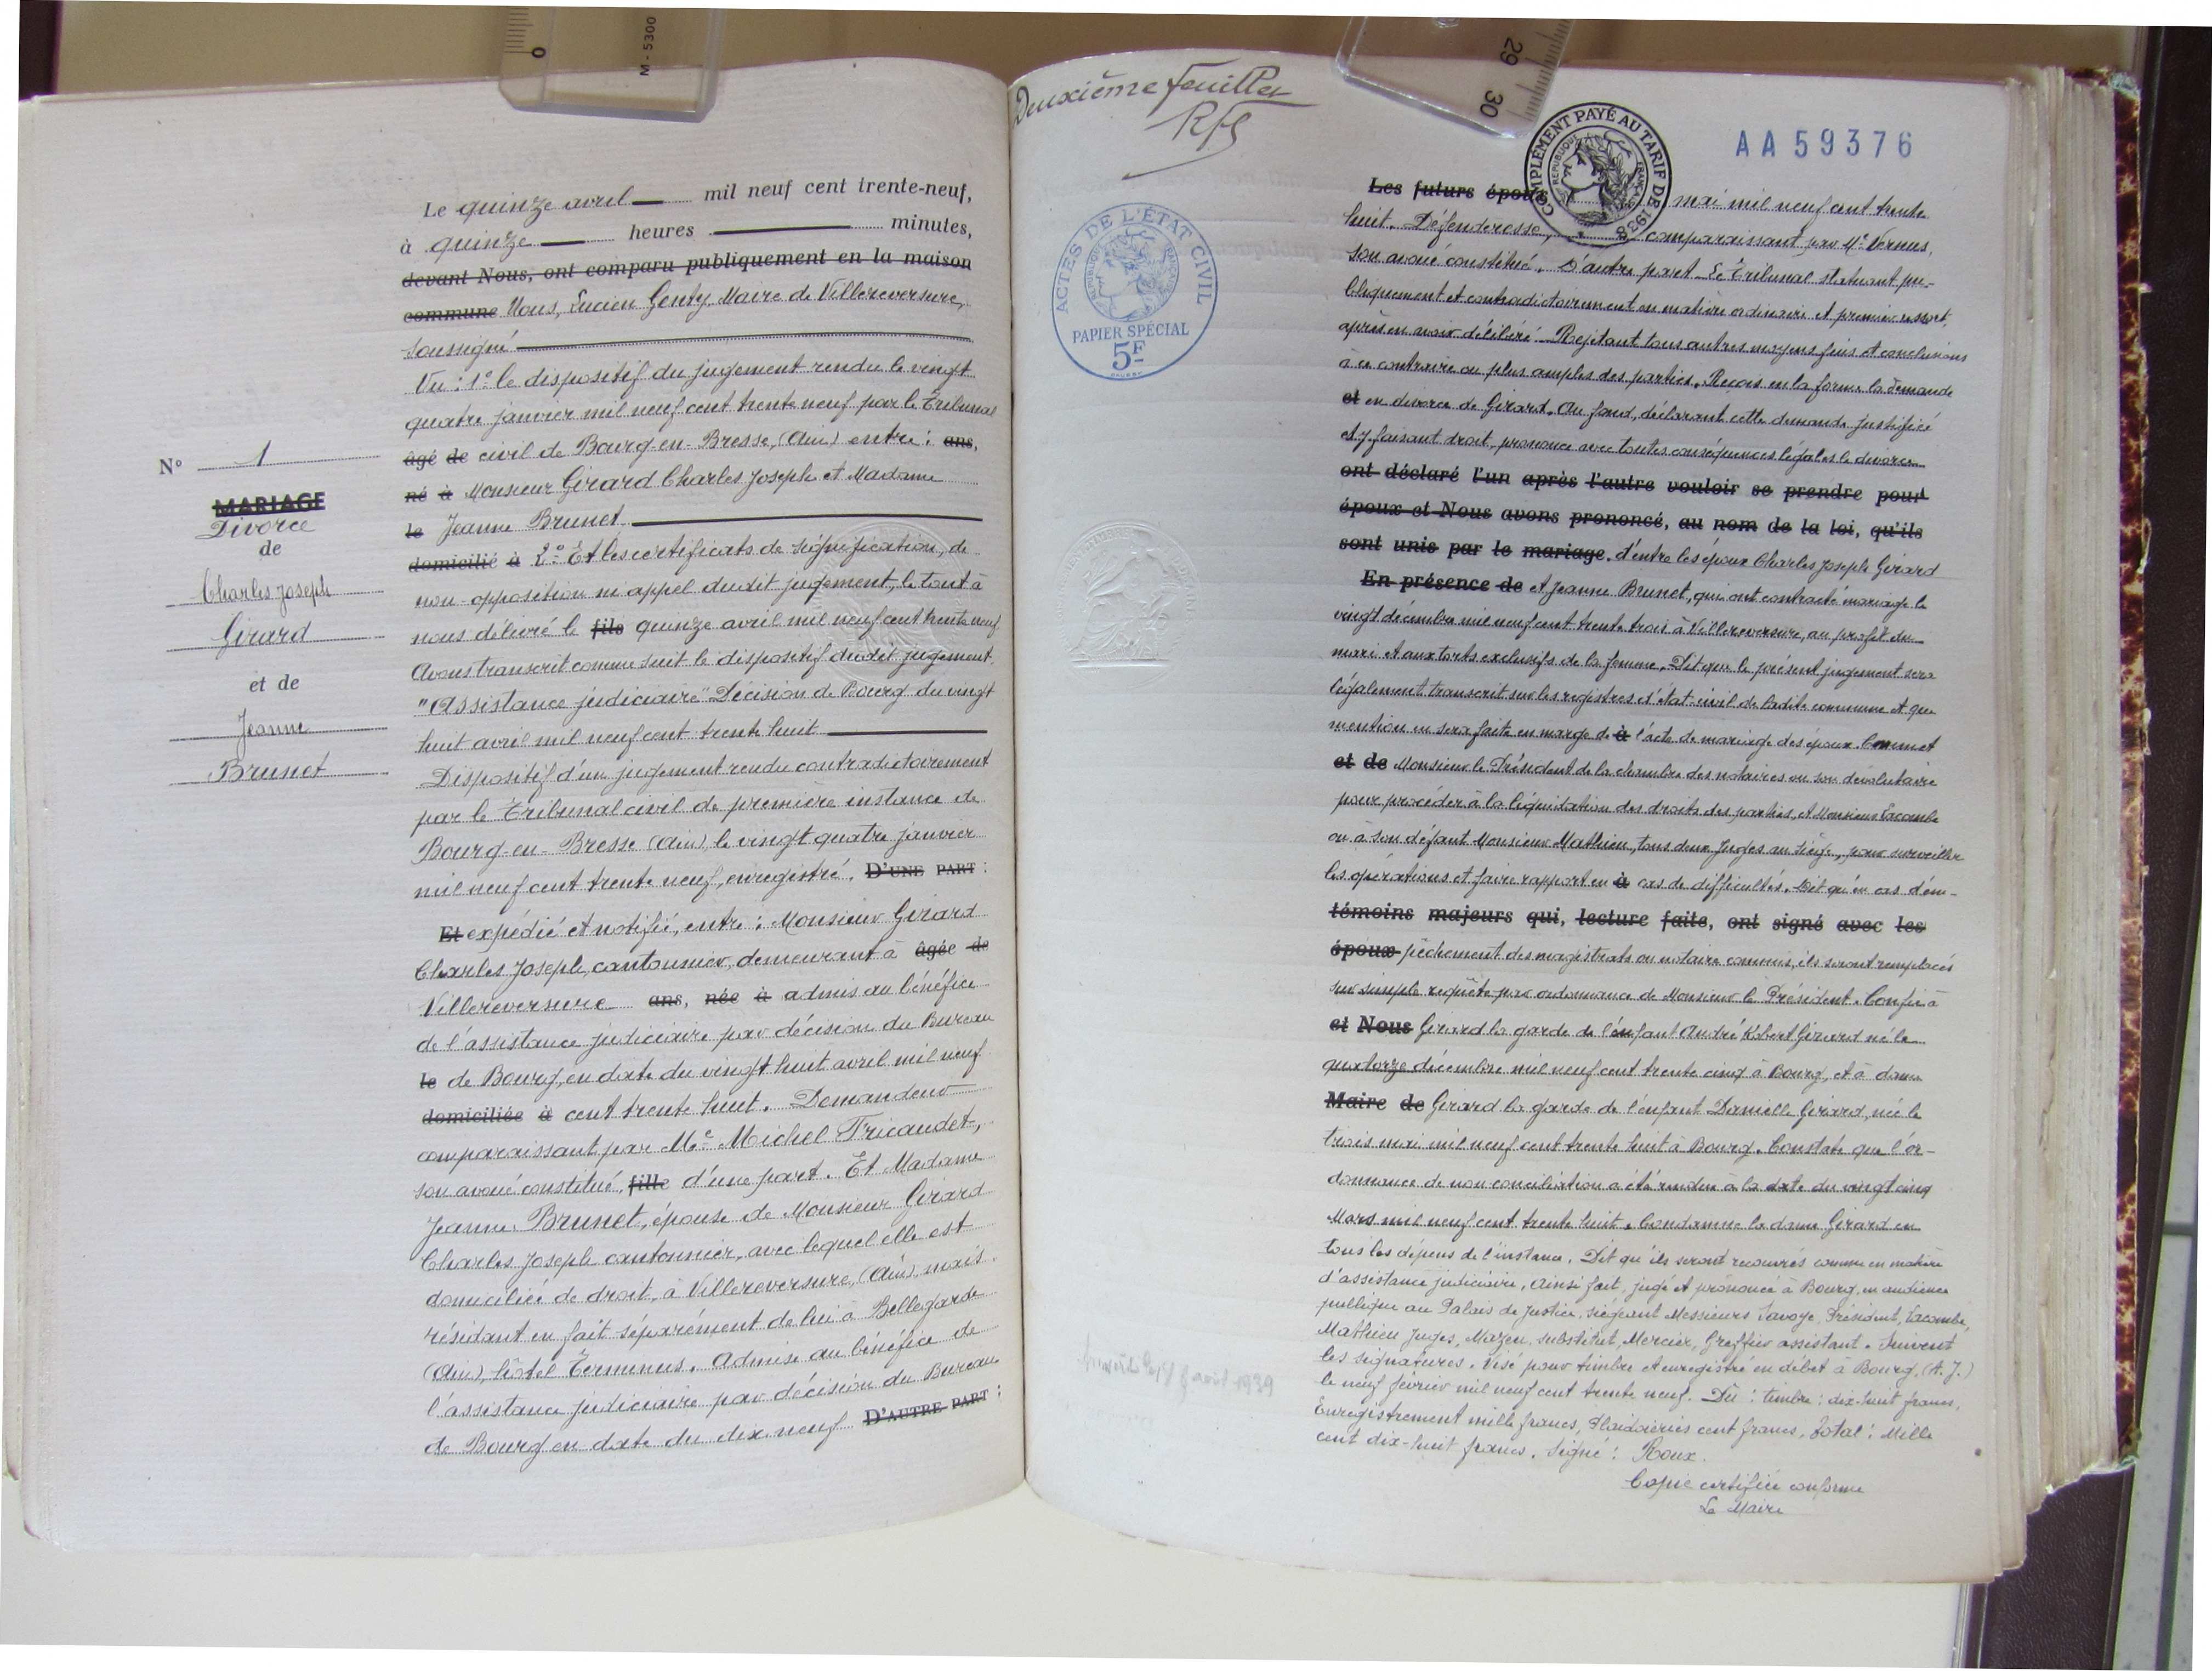 M-5300
0
29 30
N° 1
MARIAGE
Divorce
de
Charles Joseph
Girard
et de
Jeanne
Brunet
Le quinze avril mil neuf cent trente-neuf,
à quinze heures minutes,
devant Nous, ont comparu publiquement en la maison
commune Nous, Lucien Genty, Maire de Villereversure,
soussigné
Vu : 1° le dispositif du jugement rendu le vingt
quatre janvier mil neuf cent trente neuf par le Tribunal
âgé de civil de Bourg-en-Bresse, (Ain) entre : ans,
né à Monsieur Girard Charles Joseph et Madame
le Jeanne Brunet
domicilié à 2° Et les certificats de signification, de
non-opposition ni appel dudit jugement, le tout à
nous délivré le fils quinze avril mil neuf cent trente neuf
Avons transcrit comme suit le dispositif dudit jugement.
"Assistance judiciaire" Décision de Bourg du vingt
huit avril mil neuf cent trente huit
Dispositif d'un jugement rendu contradictoirement
par le Tribunal civil de première instance de
Bourg-en-Bresse (Ain), le vingt quatre janvier
mil neuf cent trente neuf, enregistré. D'UNE PART :
Et expédié et notifié, entre : Monsieur Girard
Charles Joseph, cantonnier, demeurant à âgée de
Villereversure ans, née à admis au bénéfice
de l'assistance judiciaire par décision du Bureau
le de Bourg, en date du vingt huit avril mil neuf
domiciliée à cent trente huit. Demandeur
comparaissant par Me Michel Tricaudet,
son avoué constitué, fille d'une part. Et Madame
Jeanne Brunet, épouse de Monsieur Girard
Charles Joseph cantonnier, avec lequel elle est
domiciliée de droit, à Villereversure, (Ain), mais
résidant en fait séparément de lui à Bellegarde
(Ain), hôtel Terminus. Admise au bénéfice de
l'assistance judiciaire par décision du Bureau
de Bourg en date du dix neuf D'AUTRE PART :
Deuxième feuillet
ACTES DE L'ÉTAT CIVIL
RÉPUBLIQUE FRANÇAISE
PAPIER SPÉCIAL
5F
avril 1939
COMPLÉMENT PAYÉ AU TARIF DE 1938
RÉPUBLIQUE FRANÇAISE
AA59376
Les futurs époux mai mil neuf cent trente
huit. Défenderesse, comparaissant par Me Vernus,
son avoué constitué. D'autre part. Le Tribunal statuant pu-
bliquement et contradictoirement en matière ordinaire et premier ressort,
après en avoir délibéré. Rejetant tous autres moyens fins et conclusions
à ce contraire ou plus amples des parties. Reçois en la forme la demande
et en divorce de Girard. Au fond, déclarant cette demande justifiée
et y faisant droit, prononce avec toutes conséquences légales le divorce
ont déclaré l'un après l'autre vouloir se prendre pour
époux et Nous avons prononcé, au nom de la loi, qu'ils
sont unis par le mariage. d'entre les époux Charles Joseph Girard
En présence de et Jeanne Brunet, qui ont contracté mariage le
vingt décembre mil neuf cent trente trois à Villereversure, au profit du
mari et aux torts exclusifs de la femme. Dit que le présent jugement sera
légalement transcrit sur les registres d'état-civil de ladite commune et que
mention en sera faite en marge de à l'acte de mariage des époux. Commet
et de Monsieur le Président de la chambre des notaires ou son dévolutaire
pour procéder à la liquidation des droits des parties, et Monsieur Lacombe
ou à son défaut Monsieur Mathieu, tous deux Juges au siège, pour surveiller
les opérations et faire rapport en à cas de difficultés. Dit qu'en cas d'em-
témoins majeurs qui, lecture faite, ont signé avec les
époux pêchement des magistrats ou notaire commis, ils seront remplacés
sur simple requête par ordonnance de Monsieur le Président. Confie à
et Nous Girard la garde de l'enfant André Robert Girard né le
quatorze décembre mil neuf cent trente cinq à Bourg, et à dame
Maire de Girard la garde de l'enfant Danielle Girard, née le
trois mai mil neuf cent trente huit à Bourg. Constate que l'or-
donnance de non conciliation a été rendue à la date du vingt cinq
Mars mil neuf cent trente huit. Condamne la dame Girard en
tous les dépens de l'instance. Dit qu'ils seront recouvrés comme en matière
d'assistance judiciaire. Ainsi fait, jugé et prononcé à Bourg, en audience
publique au Palais de Justice, siégeant Messieurs Savoye, Président, Lacombe,
Mathieu Juges, Mazen, substitut, Mercier, Greffier assistant. Suivent
les signatures. Visé pour timbre et enregistré en débet à Bourg, (A. J.)
le neuf février mil neuf cent trente neuf. Dû : timbre : dix-huit francs,
Enregistrement mille francs, Plaidoieries cent francs, Total : Mille
cent dix-huit francs. Signé : Roux.
Copie certifiée conforme
Le Maire